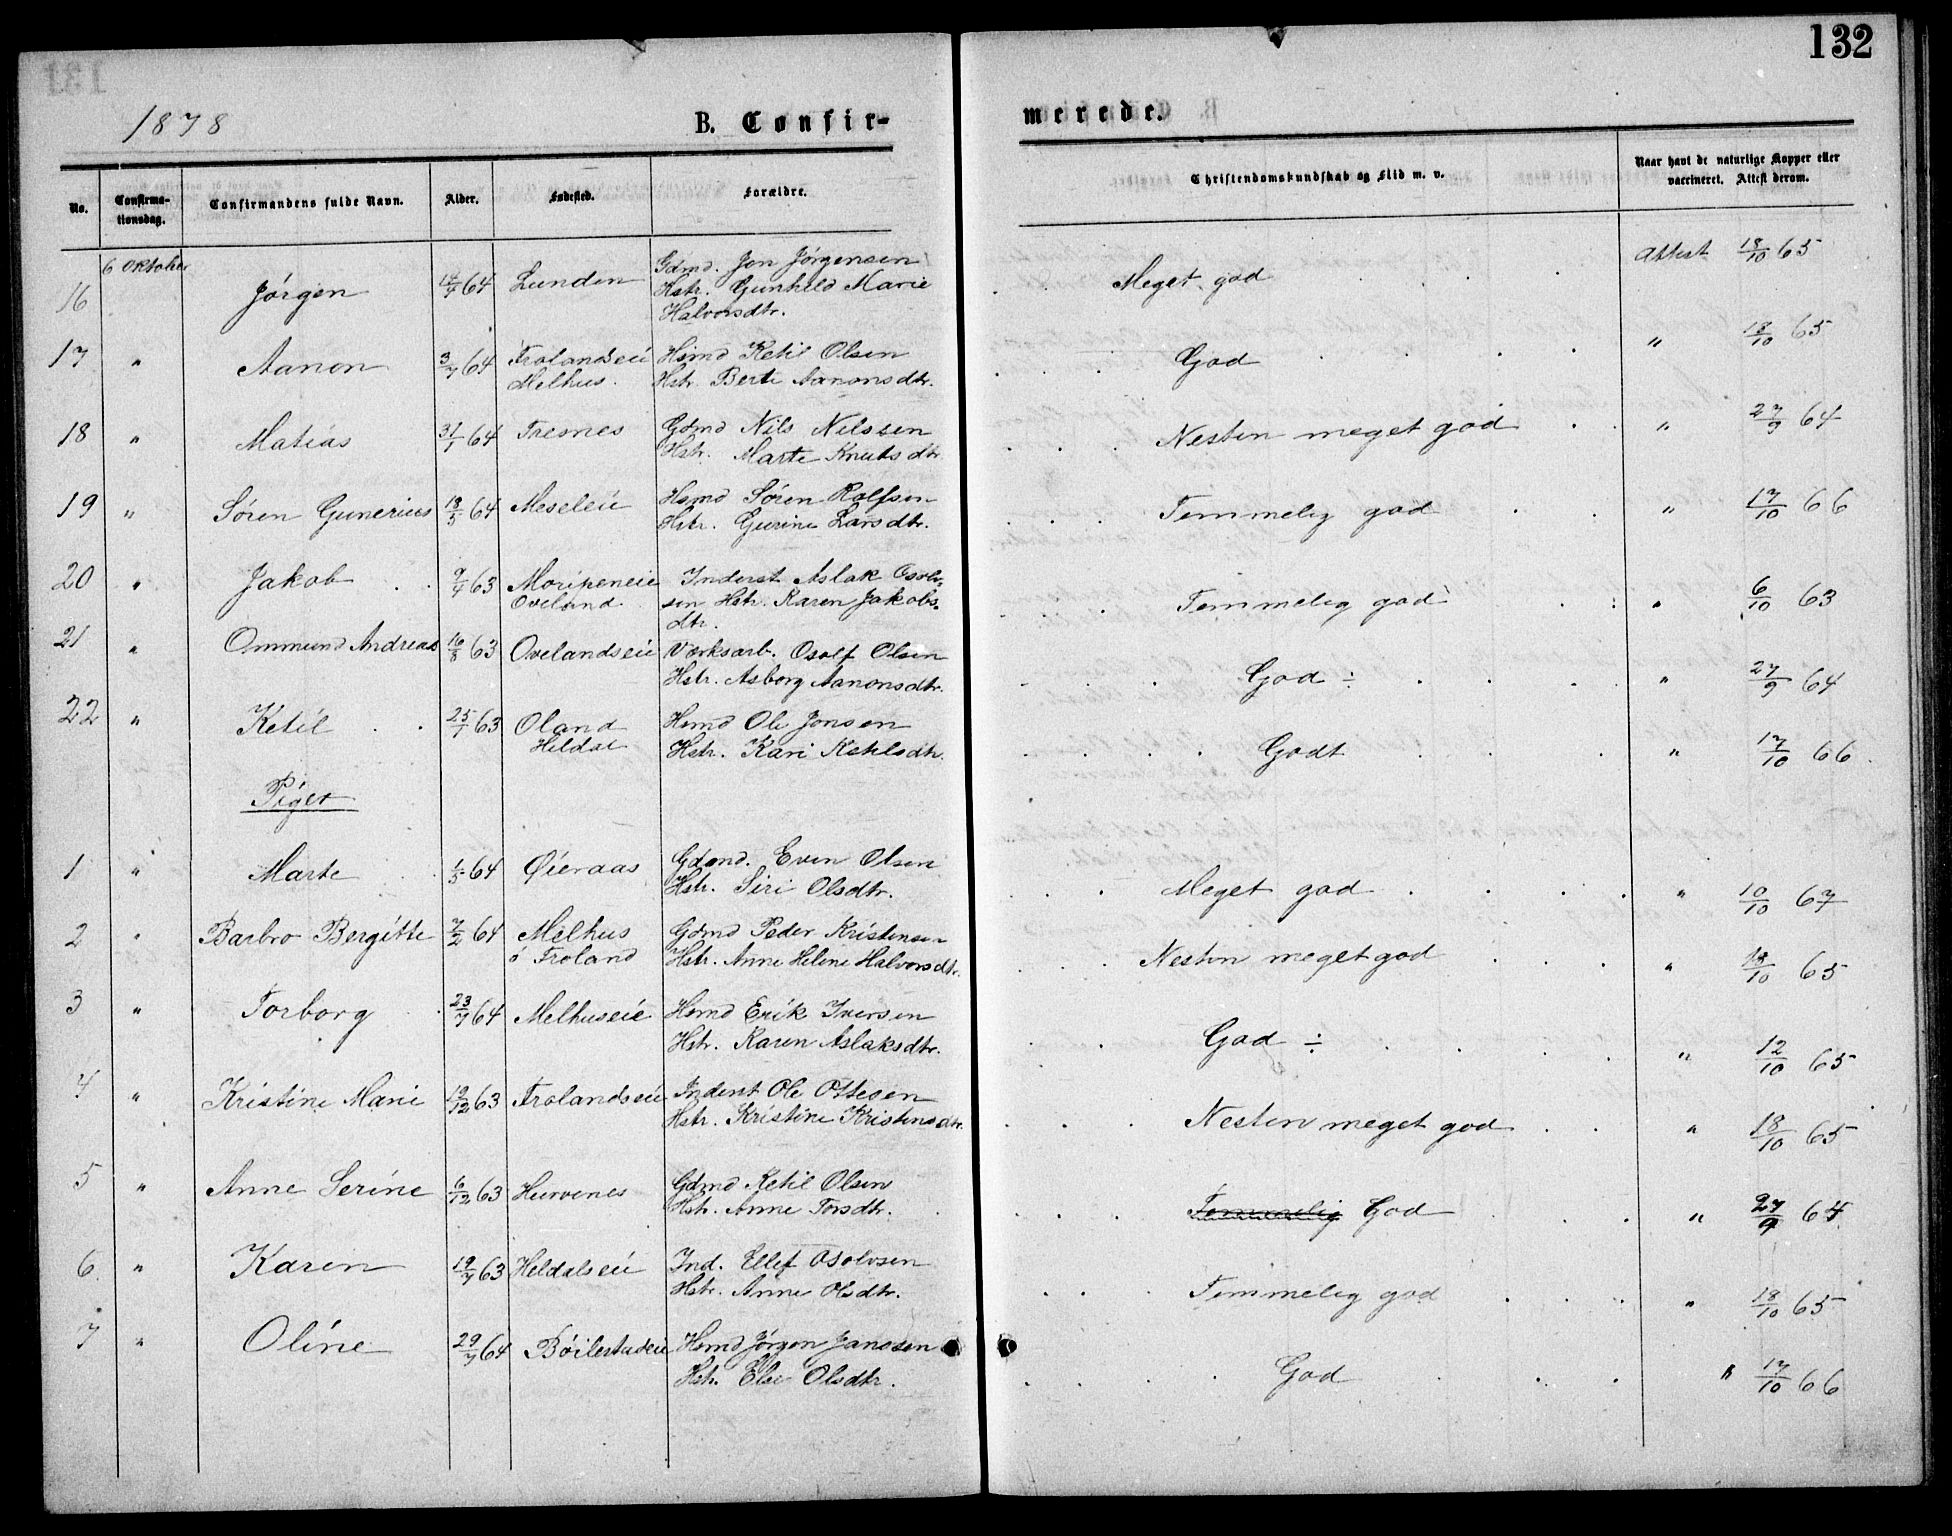 132
1878 B. Confirmerede.
No. Confirmationsdag. Confirmandens fulde Navn. Alder. Fødested. Forældre. Christendomskundskab og Flid m. v. Naar havt de naturlige Kopper eller vaccineret. Attest derom.
16 6 Oktober Jørgen 14/7 64 Lunden Gdmd. Jon Jørgensen Hstr. Gunhild Marie Halvorsdtr. Meget god Attest 18/10 65
17 " Aanon 3/7 64 Trolandseie Melhus. Hsmd Ketil Olsen Hstr. Berte Aanonsdtr. God " 18/10 65
18 " Matias 31/1 64 Tresnes Gdmd Nils Nilssen Hstr. Marte Knutsdtr Nesten meget god " 27/9 64
19 " Søren Gunerius 18/5 64 Meseleie Hsmd Søren Rolfsen Hstr. Gurine Larsdtr. Temmelig god " 17/10 66
20 " Jakob 9/4 63 Moripeneie Oveland Inderst Aslak Osolvsen Hstr. Karen Jakobsdtr. Temmelig god " 6/10 63
21 " Ommund Andreas 16/8 63 Ovelandseie Værksarb. Osolf Olsen Hstr. Asborg Aanonsdtr. God ÷ " 27/9 64
22 " Ketil 25/7 63 Oland Heldal Hsmd Ole Jonsen Hstr. Kari Ketilsdtr. Godt " 17/10 66
Piger
1 " Marte 1/5 64 Øieraas Gdmd. Even Olsen Hstr. Siri Olsdtr. Meget god " 10/10 67
2 " Barbro Bergitte 7/2 64 Melhus i Troland Gdmd Peder Kristensen Hstr. Anne Helene Halvorsdtr. Nesten meget god " 18/10 65
3 " Torborg 23/7 64 Melhuseie Hsmd Erik Iversen Hstr. Karen Aslaksdtr. God ÷ " 12/10 65
4 " Kristine Marie 19/12 63 Trolandseie Inderst Ole Ottesen Hstr. Kristine Kristensdtr. Nesten meget god " 18/10 65
5 " Anne Serine 6/12 63 Hurvenes Gdmd Ketil Olsen Hstr. Anne Torsdtr. Temmelig God " 27/9 64
6 " Karen 19/7 63 Heldalseie Ind. Ellef Osolvsen Hstr. Anne Olsdtr. Temmelig god " 18/10 65
7 " Oline 29/7 64 Bøilestadeie Hsmd Jørgen Janssen Hstr. Else Olsdtr. God " 17/10 66